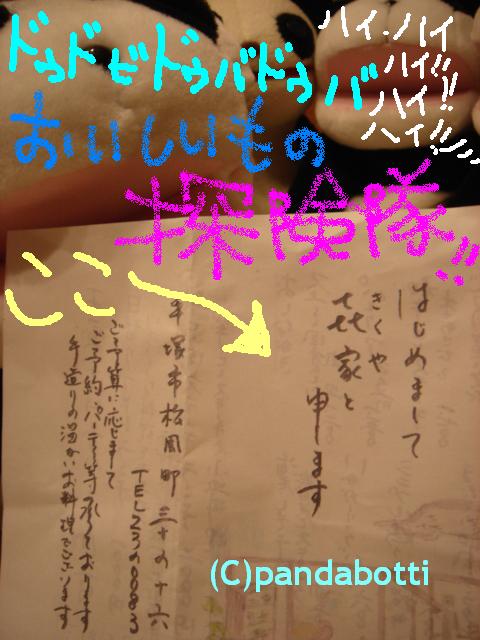 ドゥドビドゥバドゥバ
ハイ・ハイ
ハイ!!
ハイ!!
ハイ!!
おいしいもの
探険隊!!
ここ
はじめまして
きくや
㐂家と
申します
平塚市松風町 三十の十六
ご予算に応じまして
ご予約・パーティ等承っております
手造りの温かいお料理でございます
(C)pandabotti